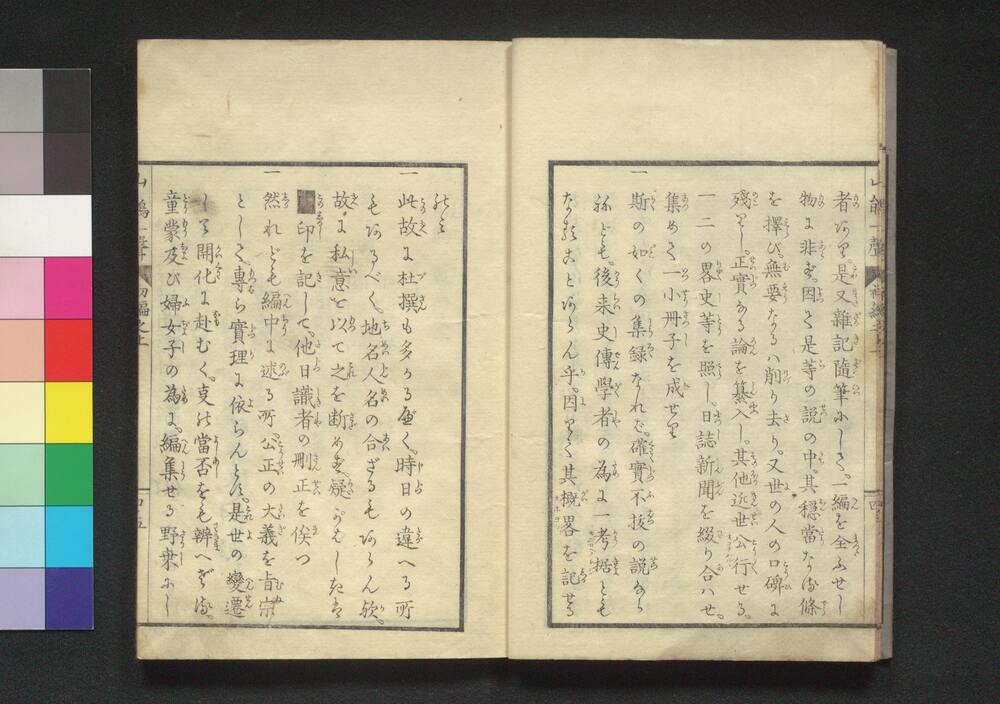 者あり。是又雜記隨筆にして。一編を全ふせし
物に非ず。因て是等の説の中。其穩當なる條
を擇び。無要なるハ削り去り。又世の人の口碑に
殘りし。正實なる論を纂入し。其他近世公行せる。
一二の畧史等を照し。日誌新聞を綴り合ハせ。
集めて一小冊子を成せり
一 斯の如くの集録なれバ。確實不抜の説なら
ねども。後来史傳學者の為に一考据とも
なることあらん乎。因りて其概畧を記せる
のミ
一 此故に杜撰も多かる可く。時日の違へる所
もあるべく。地名人名の合ざるもあらん歟。
故に私意を以て之を断めず。疑がハしきは
印を記して。他日識者の刪正を俟つ
一 然れども編中に述る所公正の大義を旨宗
として。專ら實理に依らんとす。是世の變遷
して開化に赴むく。其當否をも辨へざる。
童蒙及び婦女子の為に。編集せる野乗にし